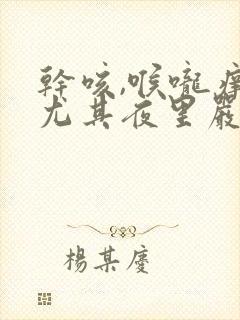 幹咳,喉嚨癢
尤其夜里嚴
楊某慶